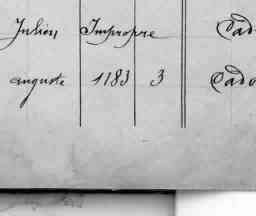 Julien Impropre Cad
auguste 1183 3 Cado